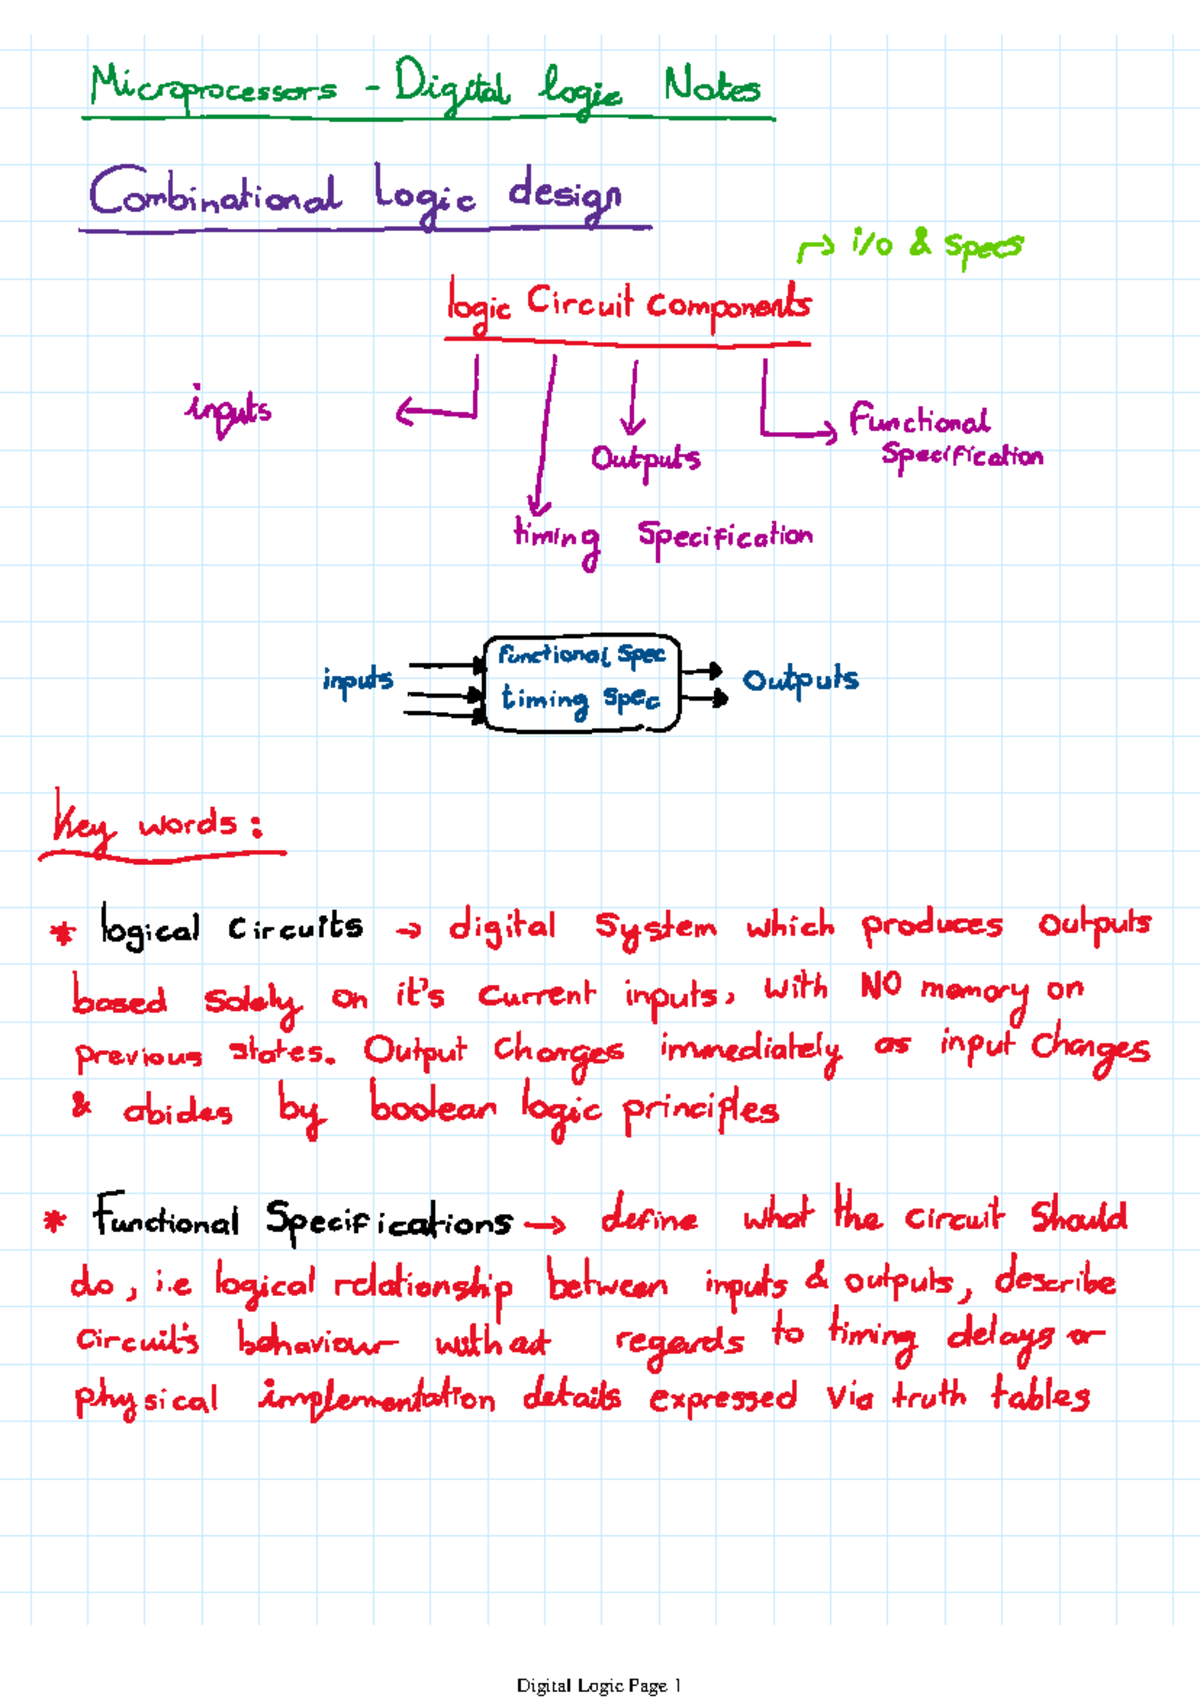 Microprocessors - Digital logic Notes
Combinational Logic design
→ i/o & Specs
logic Circuit Components
inputs
Functional
Outputs
Specification
timing Specification
functional Spec
inputs
Outputs
timing Spec
Key words:
* logical Circuits → digital System which produces Outputs
based Solely on it's Current inputs, with NO memory on
previous states. Output Changes immediately as input Changes
& abides by boolean logic principles
* Functional Specifications → define what the circuit Should
do, i.e logical relationship between inputs & outputs, describe
Circuit's behaviour without regards to timing delays or
physical implementation details expressed via truth tables
Digital Logic Page 1